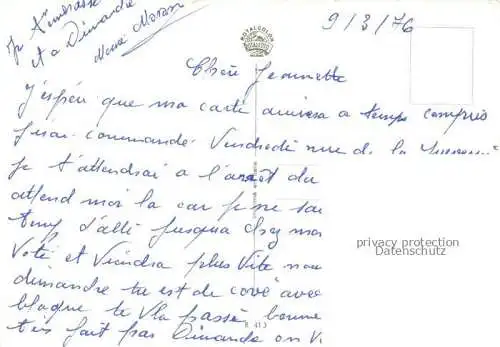 9/3/76
Je t'embrasse
et a Dimanche
ROYALCOLOR
Chère Jeannette
J'espère que ma carte arrivera a temps compris
j'irai commander Vendredi rue de la
Je t'attendrai a l'arrêt du
attend moi la car je ne
temps d'allé jusqua chez moi
Voté et Viendra plus Vite
dimanche tu est de avec
blague te Vla passé bonne
tes fait pas Dimanche on Vi
privacy protection
Datenschutz